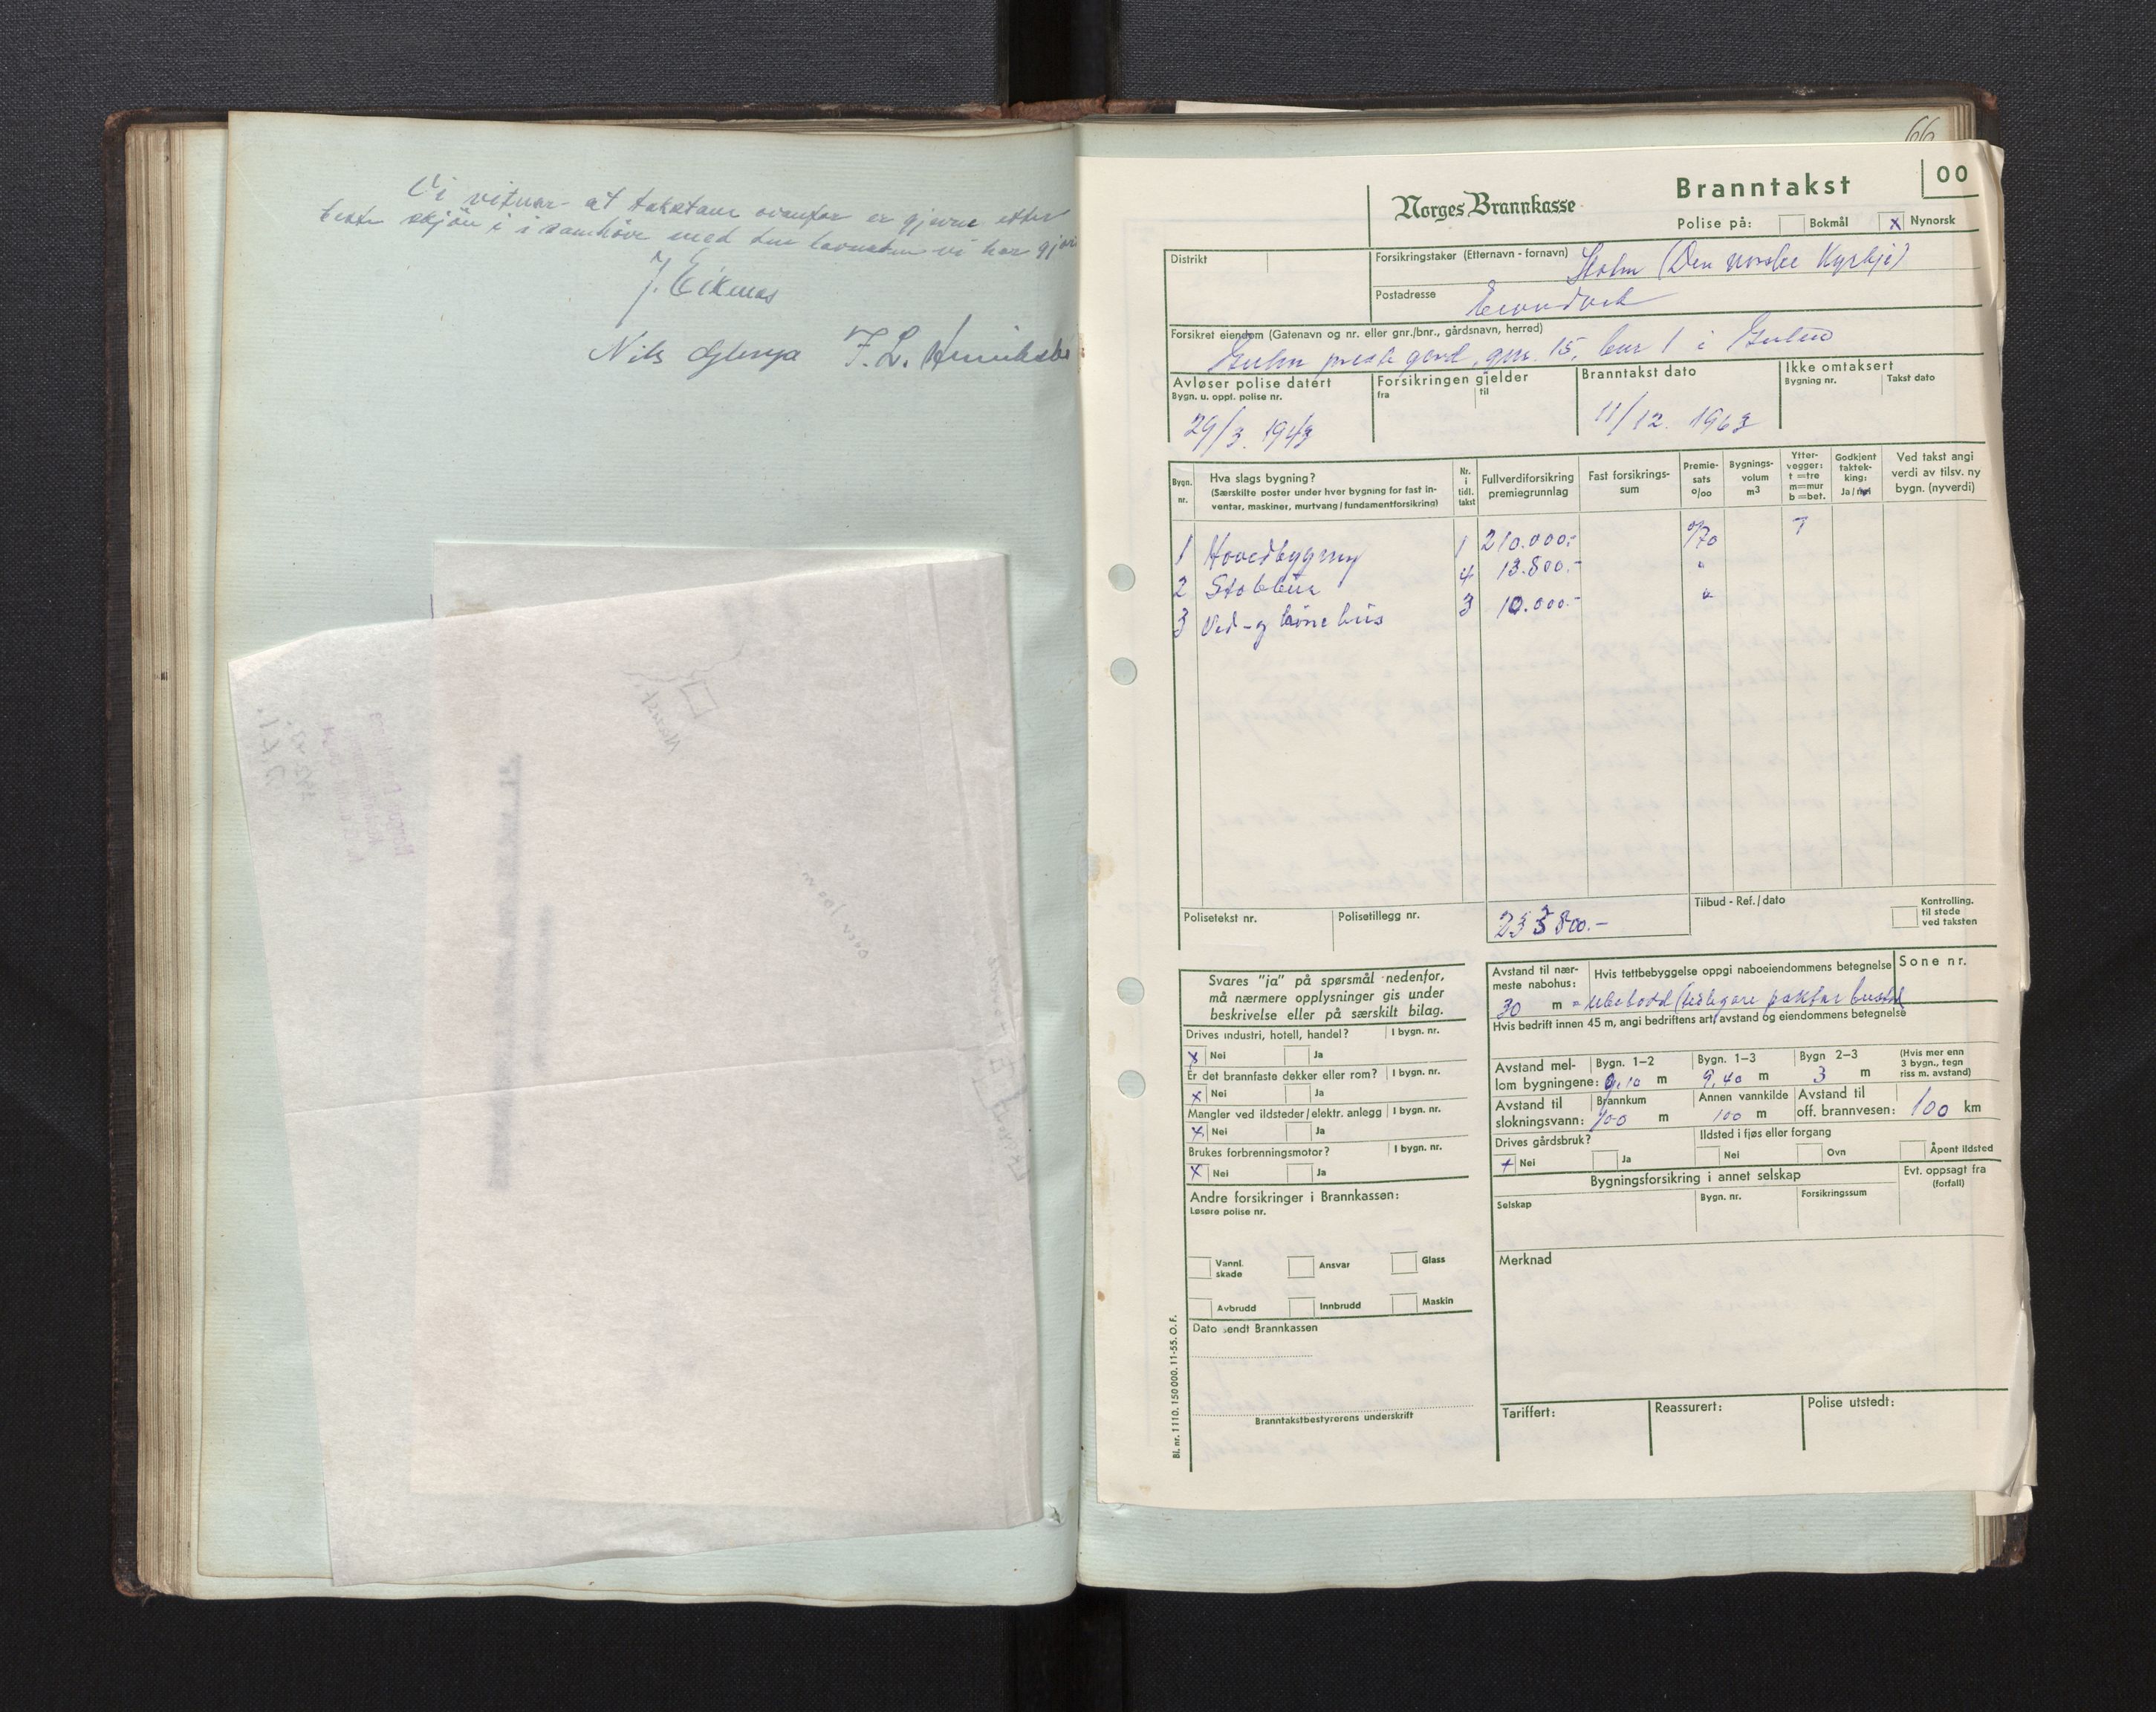 Vi vitnar at takstane ovanfor er gjevne etter
beste skjön i samhöve med den
vi har
J. Eikmas
Nils Glenja F. L. Henriksbø
66
Norges Brannkasse
Branntakst
00
Polise på: Bokmål x Nynorsk
Distrikt
Forsikringstaker (Etternavn - fornavn) (Den norske Kyrkje)
Postadresse Eivindvik
Forsikret eiendom (Gatenavn og nr. eller gnr./bnr., gårdsnavn, herred)
Gulen prestegard, gnr. 15, bnr 1 i Gulen
Avløser polise datert
Bygn. u. oppt. polise nr.
29/3. 1943
Forsikringen gjelder
fra til
Branntakst dato
11/12. 1963
Ikke omtaksert
Bygning nr. Takst dato
Bygn. nr.
Hva slags bygning?
(Særskilte poster under hver bygning for fast in-
ventar, maskiner, murtvang/fundamentforsikring)
Nr. i tidl. takst
Fullverdiforsikring
premiegrunnlag
Fast forsikrings-
sum
Premie-
sats
o/oo
Bygnings-
volum
m3
Ytter-
vegger:
t =tre
m=mur
b =bet.
Godkjent
taktek-
king:
Ja/nei
Ved takst angi
verdi av tilsv. ny
bygn. (nyverdi)
1 Hovedbygning 1 210.000:- T
2 Stabbur 4 13.800.- "
3 Ved- og hus 3 10.000.- "
Polisetekst nr.
Polisetillegg nr.
Tilbud - Ref./dato
Kontrolling.
til stede
ved taksten
Svares "ja" på spørsmål nedenfor,
må nærmere opplysninger gis under
beskrivelse eller på særskilt bilag.
Drives industri, hotell, handel? I bygn. nr.
x Nei Ja
Er det brannfaste dekker eller rom? I bygn. nr.
x Nei Ja
Mangler ved ildsteder/elektr. anlegg I bygn. nr.
x Nei Ja
Brukes forbrenningsmotor? I bygn. nr.
x Nei Ja
Andre forsikringer i Brannkassen:
Løsøre polise nr.
Vannl.
skade
Ansvar
Glass
Avbrudd
Innbrudd
Maskin
Dato sendt Brannkassen
Branntakstbestyrerens underskrift
Avstand til nær-
meste nabohus:
30 m
Hvis tettbebyggelse oppgi naboeiendommens betegnelse
Sone nr.
= ubebodd (tidlegare paktar bustad
Hvis bedrift innen 45 m, angi bedriftens art, avstand og eiendommens betegnelse
Avstand mel-
lom bygningene:
Bygn. 1–2
9,10 m
Bygn. 1–3
9,40 m
Bygn 2–3
3 m
(Hvis mer enn
3 bygn., tegn
riss m. avstand)
Avstand til
slokningsvann:
Brannkum
100 m
Annen vannkilde
100 m
Avstand til
off. brannvesen: 100 km
Drives gårdsbruk?
x Nei Ja
Ildsted i fjøs eller forgang
Nei Ovn Åpent ildsted
Bygningsforsikring i annet selskap
Selskap Bygn. nr. Forsikringssum
Evt. oppsagt fra
(forfall)
Merknad
Tariffert: Reassurert: Polise utstedt:
Bl. nr. 1110. 150 000. 11-55. O. F.